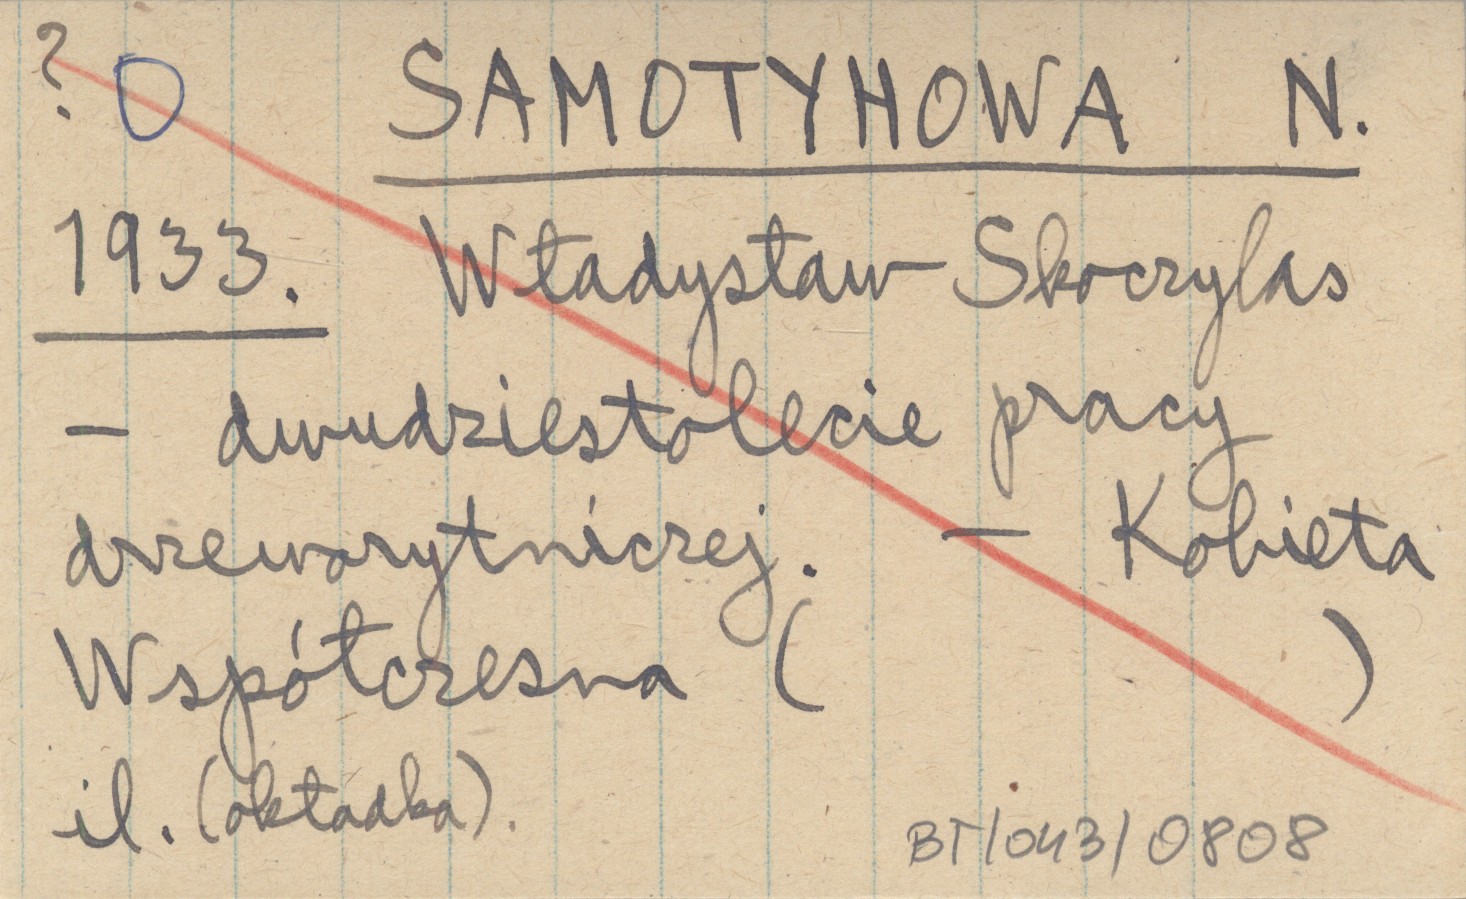 ? O SAMOTYHOWA N.
1933. Władysław Skoczylas
– dwudziestolecie pracy
drzeworytniczej. – Kobieta
Współczesna ( )
il. (okładka).
BT/043/0808